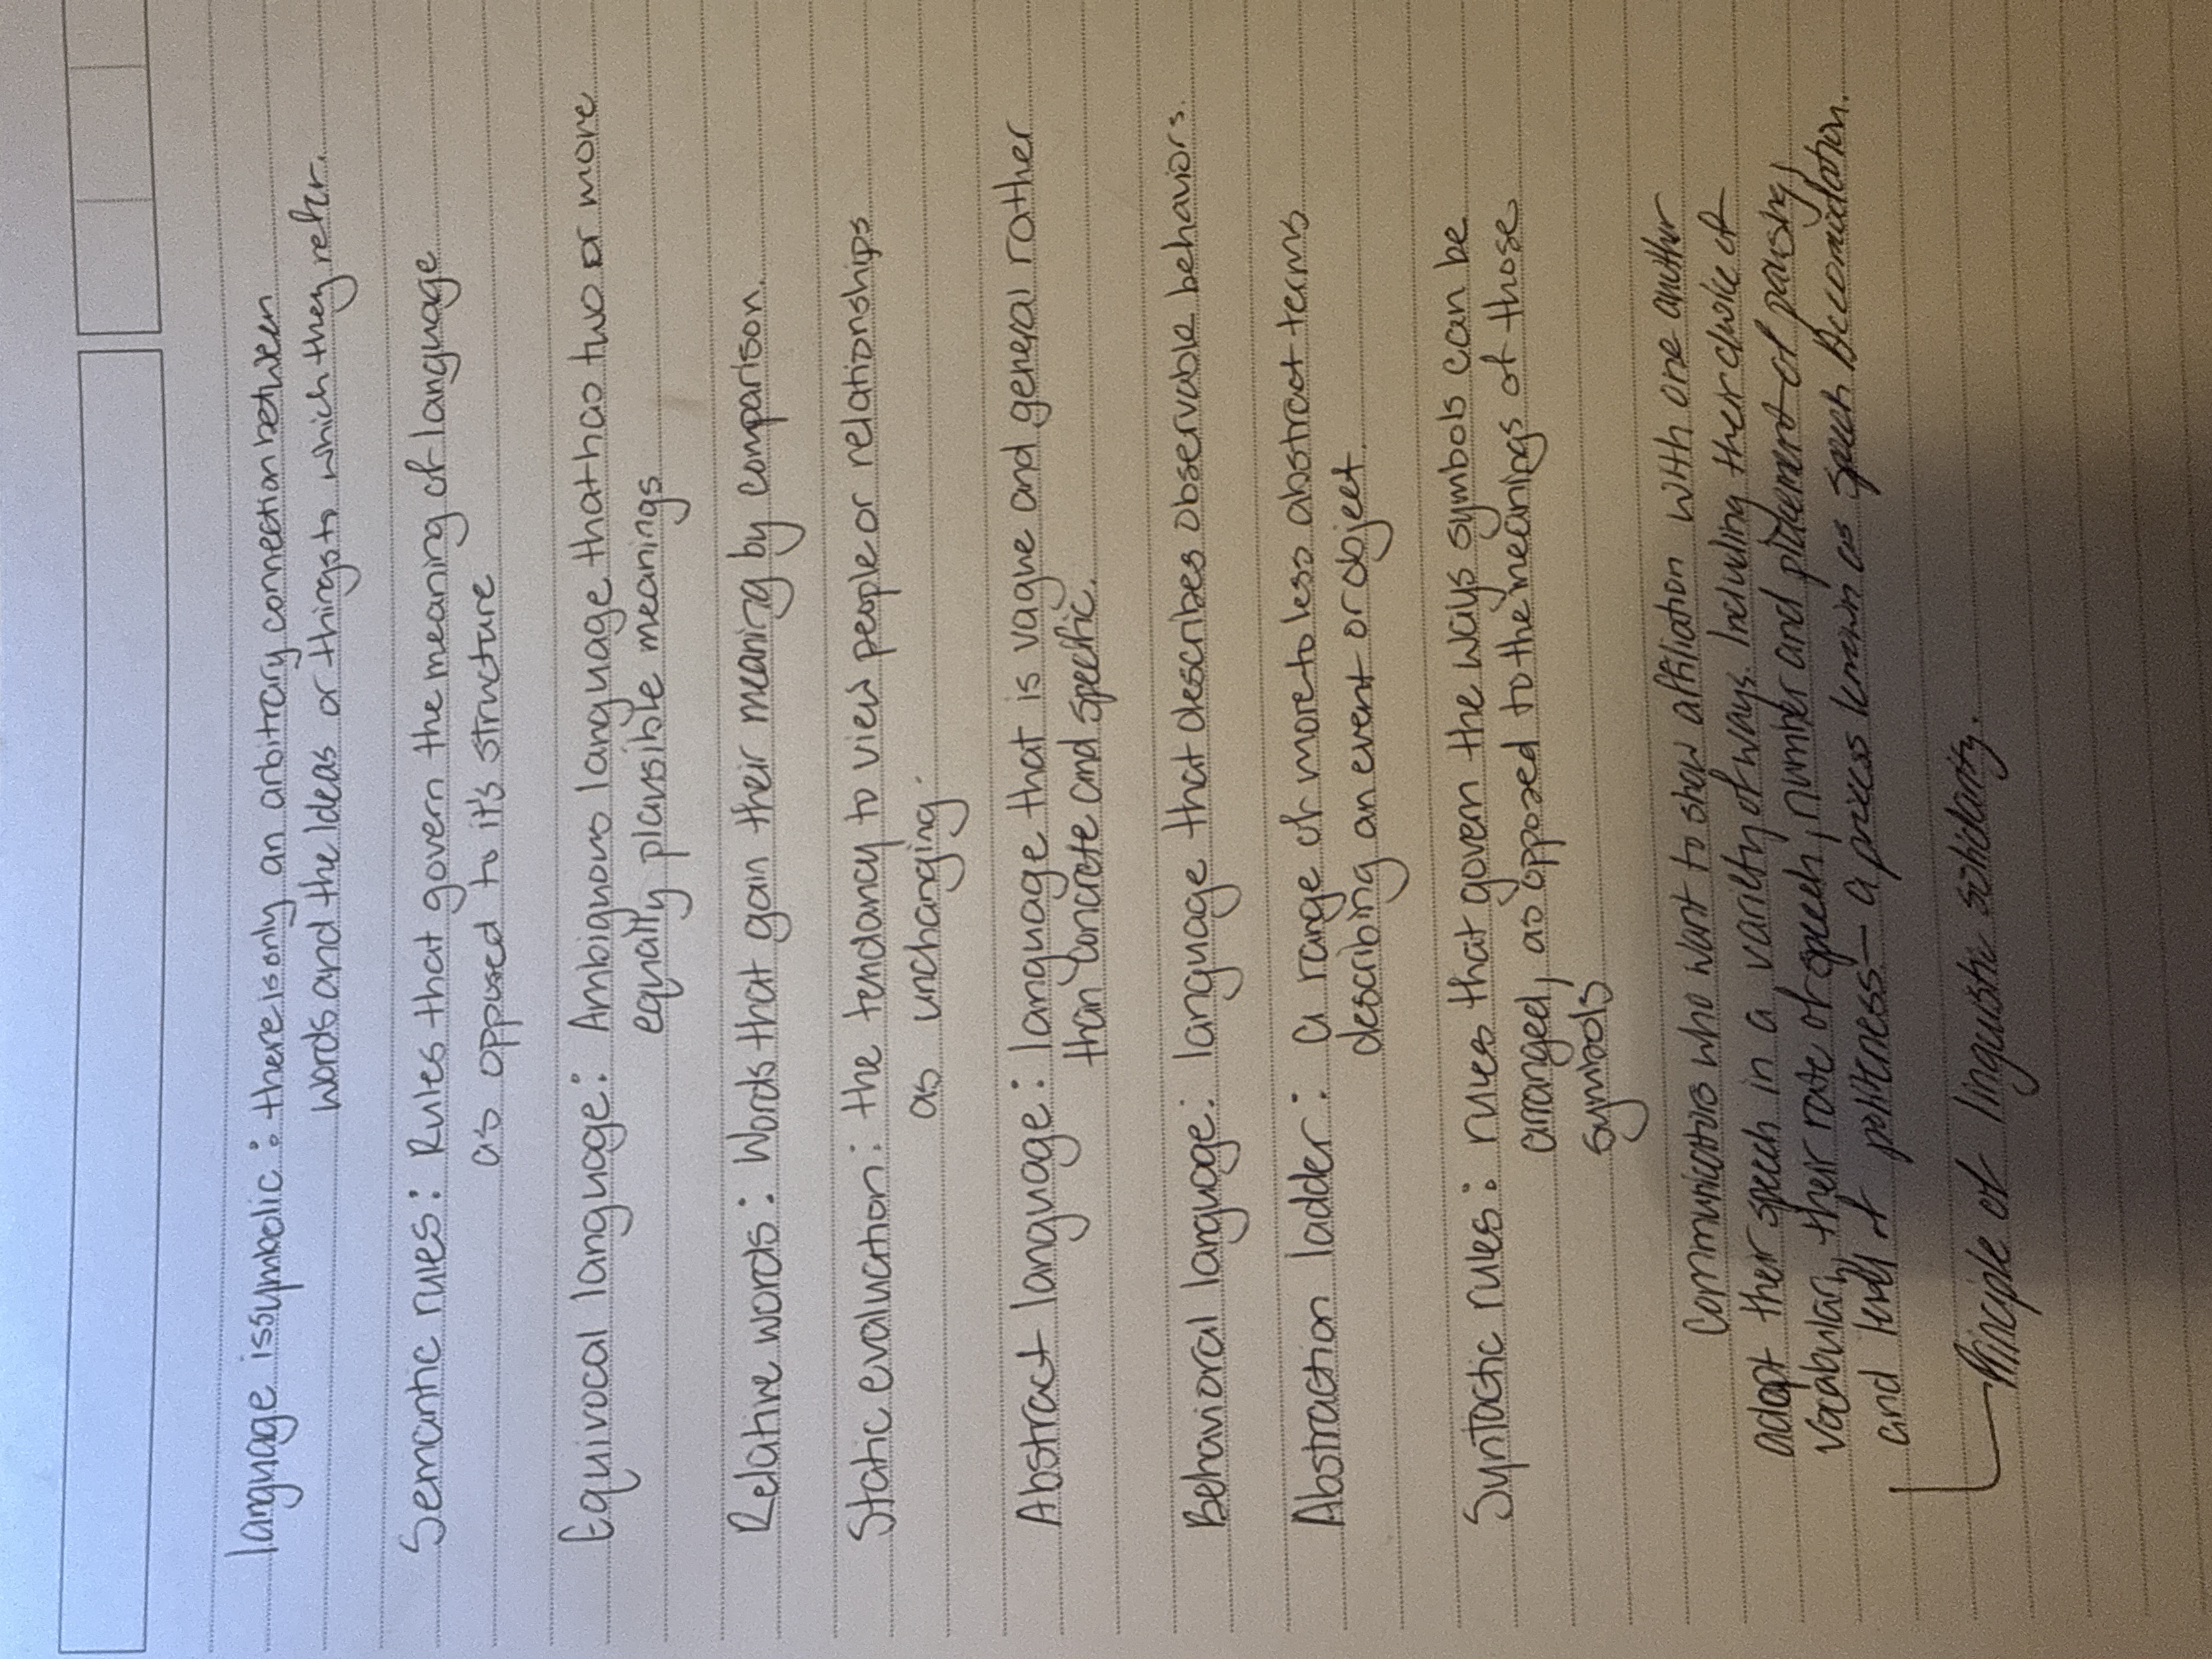 language is symbolic : there is only an arbitrary connection between
words and the Ideas or things to which they refer.
Semantic rules : Rules that govern the meaning of language
as opposed to it's structure
Equivocal language : Ambiguous language that has two or more
equally plausible meanings
Relative words : Words that gain their meaning by comparison.
Static evaluation : the tendancy to view people or relationships
as unchanging.
Abstract language : language that is vague and general rather
than concrete and specific.
Behavioral language : language that describes observable behaviors.
Abstraction ladder : a range of more to less abstract terms
describing an event or object.
Syntactic rules : rules that govern the ways symbols can be
arranged, as opposed to the meanings of those
symbols
Communicators who want to show affiliation with one another
adapt their speech in a variety of ways. Including their choice of
vocabulary, their rate of speech, number and placement of pausing,
and level of politeness - a process known as speech accomidation.
Principle of linguistic solidarity.